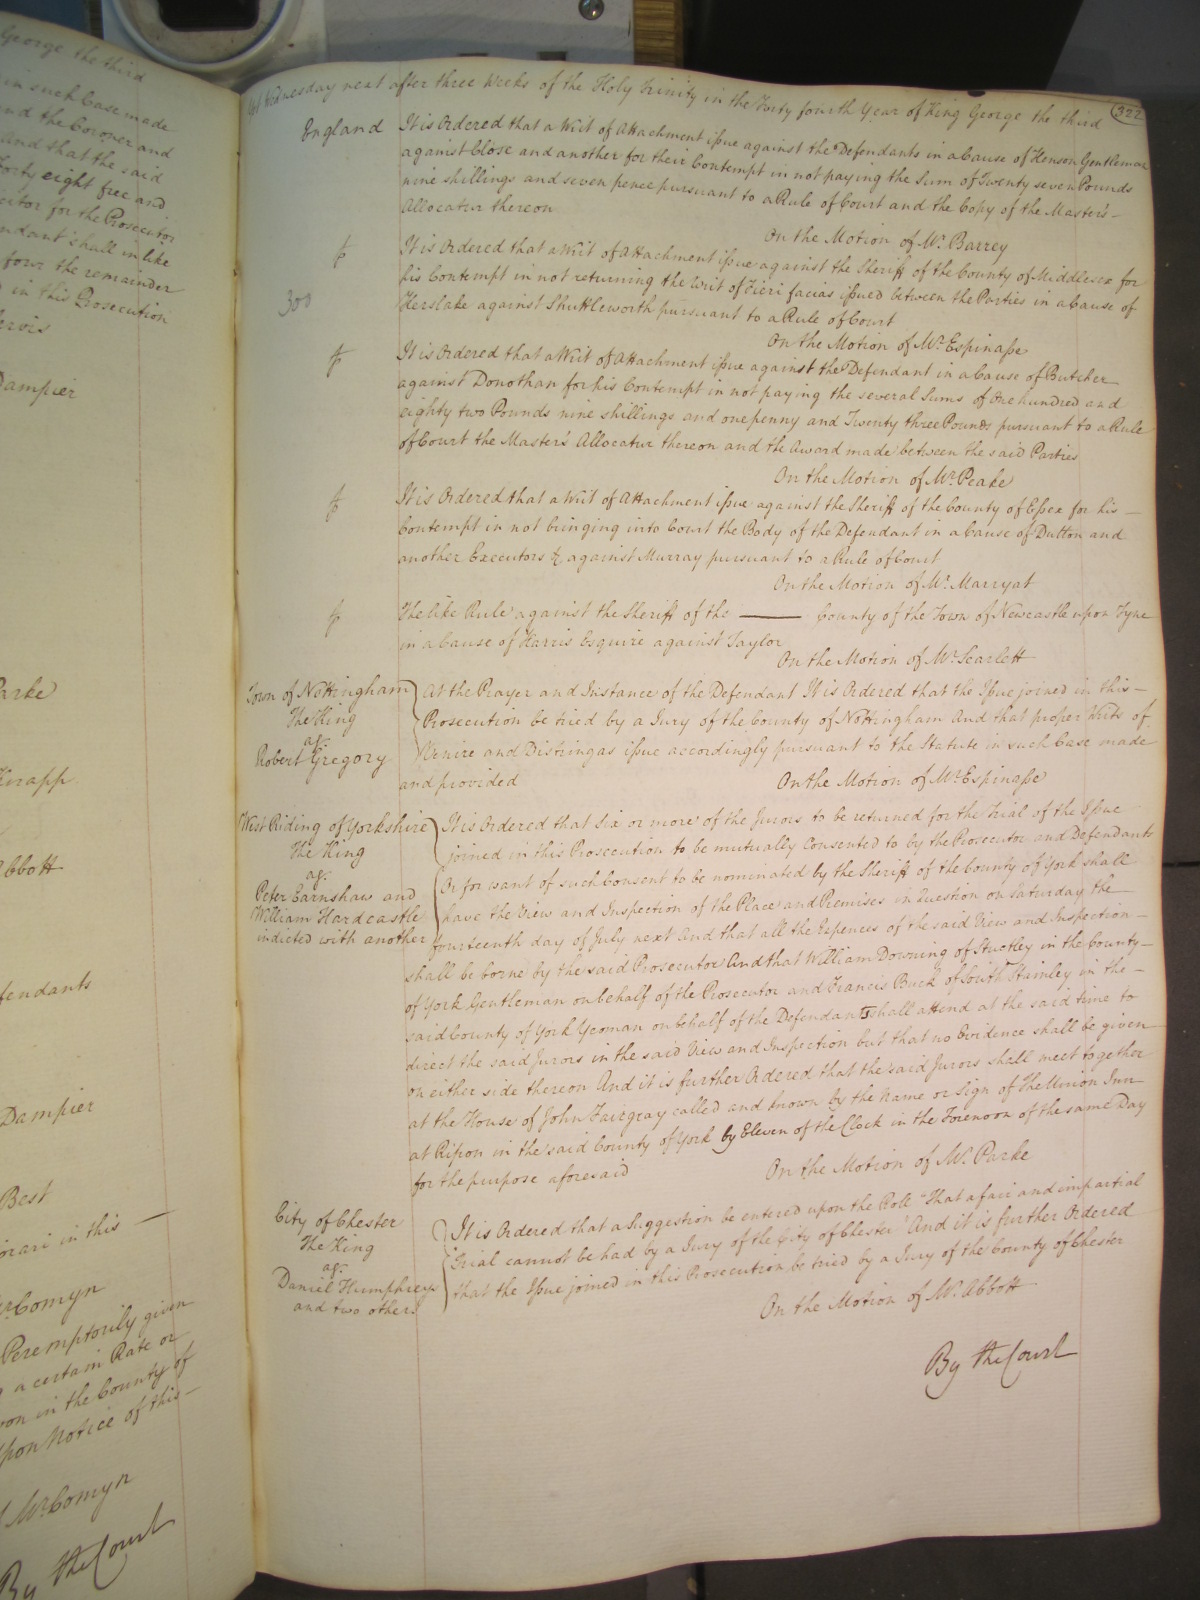 George the third
in such Case made
and the Coroner and
And that the said
Forty eight free and
for the Prosecutor
shall in like
four the remainder
in this Prosecution
Jervis
Dampier
Parke
Knapp
Abbott
Defendants
Dampier
Best
in this —
Mr. Comyn
Peremptorily given
a certain Rate or
in the County of
upon Notice of this —
Mr. Comyn
By the Court
Wednesday next after three Weeks of the Holy Trinity in the Forty fourth Year of King George the third
322
England
It is Ordered that a Writ of Attachment issue against the Defendants in a Cause of Henson Gentleman
against Close and another for their Contempt in not paying the Sum of Twenty seven Pounds
nine shillings and seven pence pursuant to a Rule of Court and the Copy of the Master's —
Allocatur thereon
On the Motion of Mr. Barrey
It is Ordered that a Writ of Attachment issue against the Sheriff of the County of Middlesex for
his Contempt in not returning the Writ of Fieri facias issued between the Parties in a Cause of
300
Herslake against Shuttleworth pursuant to a Rule of Court
On the Motion of Mr. Espinasse
It is Ordered that a Writ of Attachment issue against the Defendant in a Cause of Butcher
against Donothan for his Contempt in not paying the several Sums of One hundred and
eighty two Pounds nine shillings and one penny and Twenty three Pounds pursuant to a Rule
of Court the Master's Allocatur thereon and the Award made between the said Parties
On the Motion of Mr. Peake
It is Ordered that a Writ of Attachment issue against the Sheriff of the County of Essex for his —
Contempt in not bringing into Court the Body of the Defendant in a Cause of Dutton and
another Executors &c against Murray pursuant to a Rule of Court
On the Motion of Mr. Marryat
The like Rule against the Sheriff of the —— County of the Town of Newcastle upon Tyne
in a Cause of Harris Esquire against Taylor
On the Motion of Mr. Scarlett
Town of Nottingham
The King
agt.
Robert Gregory
At the Prayer and Instance of the Defendant It is Ordered that the Issue joined in this —
Prosecution be tried by a Jury of the County of Nottingham And that proper Writs of
Venire and Distringas issue accordingly pursuant to the Statute in such Case made
and provided
On the Motion of Mr. Espinasse
West Riding of Yorkshire
The King
agt.
Peter Earnshaw and
William Hardcastle
indicted with another
It is Ordered that Six or more of the Jurors to be returned for the Trial of the Issue
joined in this Prosecution to be mutually Consented to by the Prosecutor and Defendants
Or for want of such Consent to be nominated by the Sheriff of the County of York shall
have the View and Inspection of the Place and Premises in Question on Saturday the
fourteenth day of July next And that all the Expences of the said View and Inspection —
shall be borne by the said Prosecutor And that William Downing of Stuctley in the County —
of York Gentleman on behalf of the Prosecutor and Francis Buck of South Stainley in the —
said County of York Yeoman on behalf of the Defendants shall attend at the said time to
direct the said Jurors in the said View and Inspection but that no Evidence shall be given
on either side thereon And it is further Ordered that the said Jurors shall meet together
at the House of John Fairgray called and known by the Name or Sign of The Union Inn
at Ripon in the said County of York by Eleven of the Clock in the Forenoon of the same Day
for the purpose aforesaid
On the Motion of Mr. Parke
City of Chester
The King
agt.
Daniel Humphreys
and two others
It is Ordered that a Suggestion be entered upon the Roll "That a fair and impartial
Trial cannot be had by a Jury of the City of Chester" And it is further Ordered
that the Issue joined in this Prosecution be tried by a Jury of the County of Chester
On the Motion of Mr. Abbott
By the Court